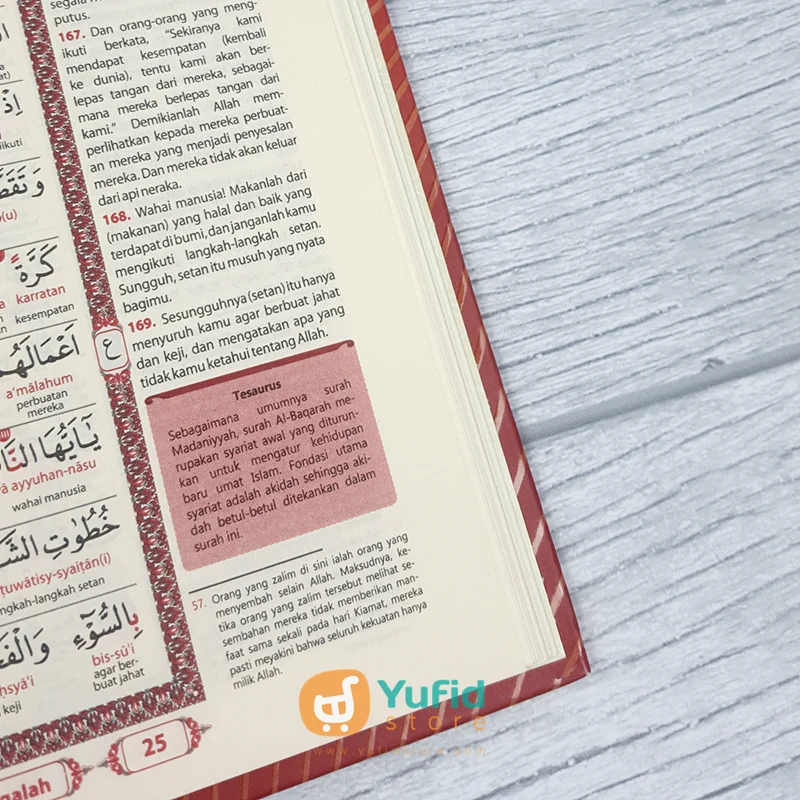 putus.
167. Dan orang-orang yang meng-
ikuti berkata, "Sekiranya kami
mendapat kesempatan (kembali
ke dunia), tentu kami akan ber-
lepas tangan dari mereka, sebagai-
mana mereka berlepas tangan dari
kami." Demikianlah Allah mem-
perlihatkan kepada mereka perbuat-
an mereka yang menjadi penyesalan
mereka. Dan mereka tidak akan keluar
dari api neraka.
168. Wahai manusia! Makanlah dari
(makanan) yang halal dan baik yang
terdapat di bumi, dan janganlah kamu
mengikuti langkah-langkah setan.
Sungguh, setan itu musuh yang nyata
bagimu.
169. Sesungguhnya (setan) itu hanya
menyuruh kamu agar berbuat jahat
dan keji, dan mengatakan apa yang
tidak kamu ketahui tentang Allah.
Tesaurus
Sebagaimana umumnya surah
Madaniyyah, surah Al-Baqarah me-
rupakan syariat awal yang diturun-
kan untuk mengatur kehidupan
baru umat Islam. Fondasi utama
syariat adalah akidah sehingga aki-
dah betul-betul ditekankan dalam
surah ini.
57. Orang yang zalim di sini ialah orang yang
menyembah selain Allah. Maksudnya, ke-
tika orang yang zalim tersebut melihat se-
sembahan mereka tidak memberikan man-
faat sama sekali pada hari Kiamat, mereka
pasti meyakini bahwa seluruh kekuatan hanya
milik Allah.
إِذْ
كَرَّةً
karratan
kesempatan
ع
أَعْمَالَهُمْ
a'mālahum
perbuatan
mereka
يٰٓاَيُّهَا
ayyuhan-nāsu
wahai manusia
خُطُوٰتِ
langkah-langkah setan
بِالسُّوْۤءِ
bis-sū'i
agar ber-
buat jahat
keji
25
Yufid
store